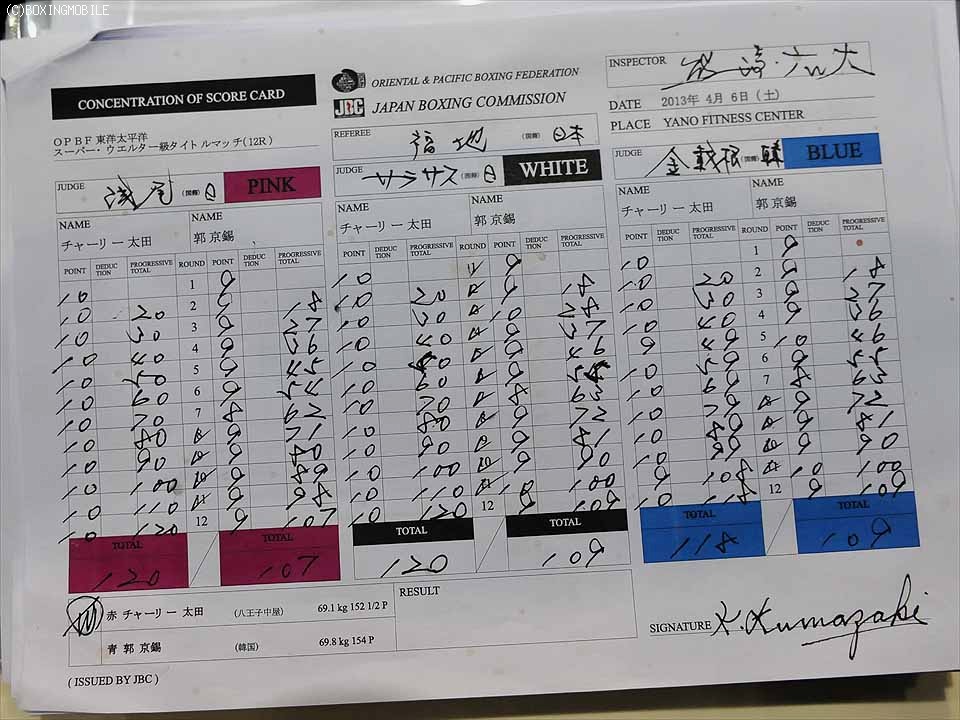 (C)BOXINGMOBILE
CONCENTRATION OF SCORE CARD
ORIENTAL & PACIFIC BOXING FEDERATION
JBC JAPAN BOXING COMMISSION
INSPECTOR
DATE 2013年 4月 6日(土)
PLACE YANO FITNESS CENTER
OPBF 東洋太平洋
スーパー・ウエルター級タイトルマッチ(12R)
REFEREE 福地 (国籍) 日本
JUDGE 浅尾 (国籍) 日 PINK
JUDGE サラサス (国籍) 日 WHITE
JUDGE 金載根 (国籍) 韓 BLUE
NAME NAME NAME NAME NAME NAME
チャーリー太田 郭 京錫 チャーリー 太田 郭 京錫 チャーリー 太田 郭 京錫
POINT DEDUCTION PROGRESSIVE TOTAL ROUND POINT DEDUCTION PROGRESSIVE TOTAL POINT DEDUCTION PROGRESSIVE TOTAL ROUND POINT DEDUCTION PROGRESSIVE TOTAL POINT DEDUCTION PROGRESSIVE TOTAL ROUND POINT DEDUCTION PROGRESSIVE TOTAL
10 1 9 10 9 10 1 9
10 20 2 9 18 10 20 9 18 10 20 2 9 18
10 30 3 9 27 10 30 10 28 10 30 3 9 27
10 40 4 9 36 10 40 9 37 10 40 4 9 36
10 50 5 9 45 10 9 46 9 49 5 10 46
10 60 6 9 54 10 60 9 10 59 6 9 55
10 70 7 8 62 10 70 8 63 10 69 7 8 63
10 80 9 71 10 80 9 72 10 79 9 72
10 90 9 80 10 90 9 81 10 89 9 81
10 100 9 89 10 100 9 90 10 99 9 90
10 110 9 98 10 110 10 100 9 108 10 100
10 120 12 9 107 10 120 12 9 109 10 118 12 9 109
TOTAL TOTAL TOTAL TOTAL TOTAL TOTAL
120 107 120 109 118 109
W 赤 チャーリー 太田 (八王子中屋) 69.1 kg 152 1/2 P
青 郭 京錫 (韓国) 69.8 kg 154 P
RESULT
SIGNATURE K.Kumazaki
( ISSUED BY JBC )